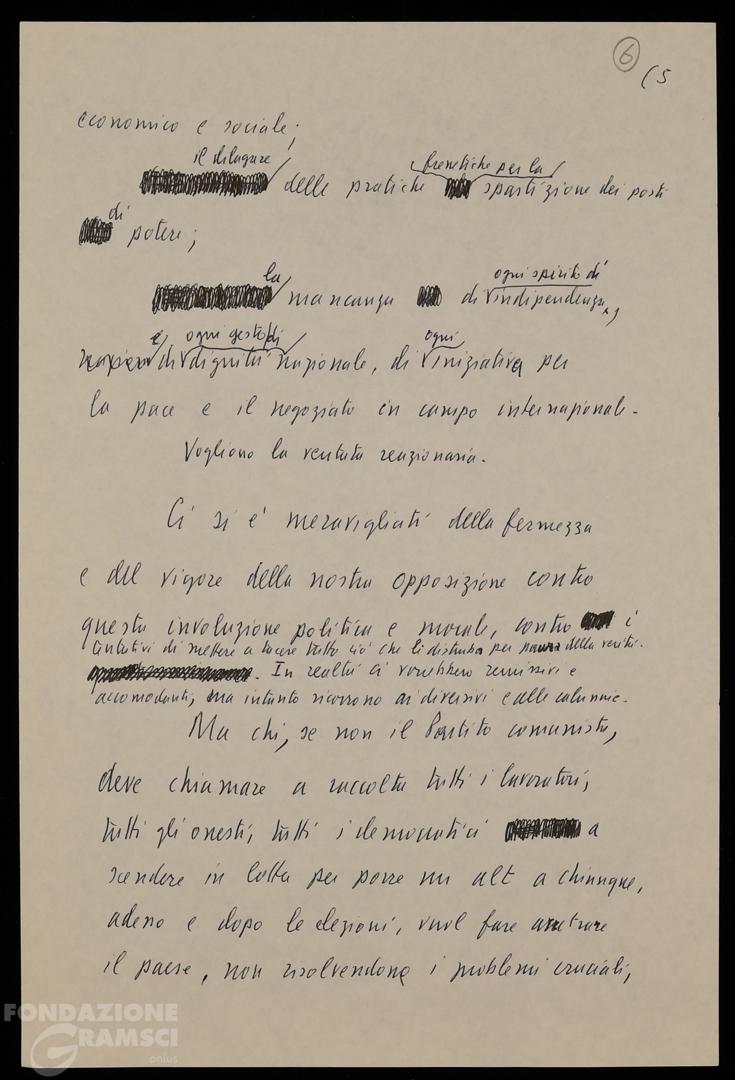 6
(5
economico e sociale;
il dilagare
delle pratiche
frenetiche per la
spartizione dei posti
di
potere;
la
mancanza di
ogni spirito di
indipendenza,
e, ogni gesto di ogni
di dignità nazionale, di iniziativa per
la pace e il negoziato in campo internazionale.
Vogliono la ventata reazionaria.
Ci si è meravigliati della fermezza
e del vigore della nostra opposizione contro
questa involuzione politica e morale, contro i
tentativi di mettere a tacere tutto ciò che li disturba per paura della verità.
In realtà ci vorrebbero remissivi e
accomodanti, ma intanto ricorrono ai diversivi e alle calunnie.
Ma chi, se non il Partito comunista,
deve chiamare a raccolta tutti i lavoratori,
tutti gli onesti, tutti i democratici a
scendere in lotta per porre un alt a chiunque,
adesso e dopo le elezioni, vuol fare arretrare
il paese, non risolvendone i problemi cruciali,
FONDAZIONE
GRAMSCI
onlus